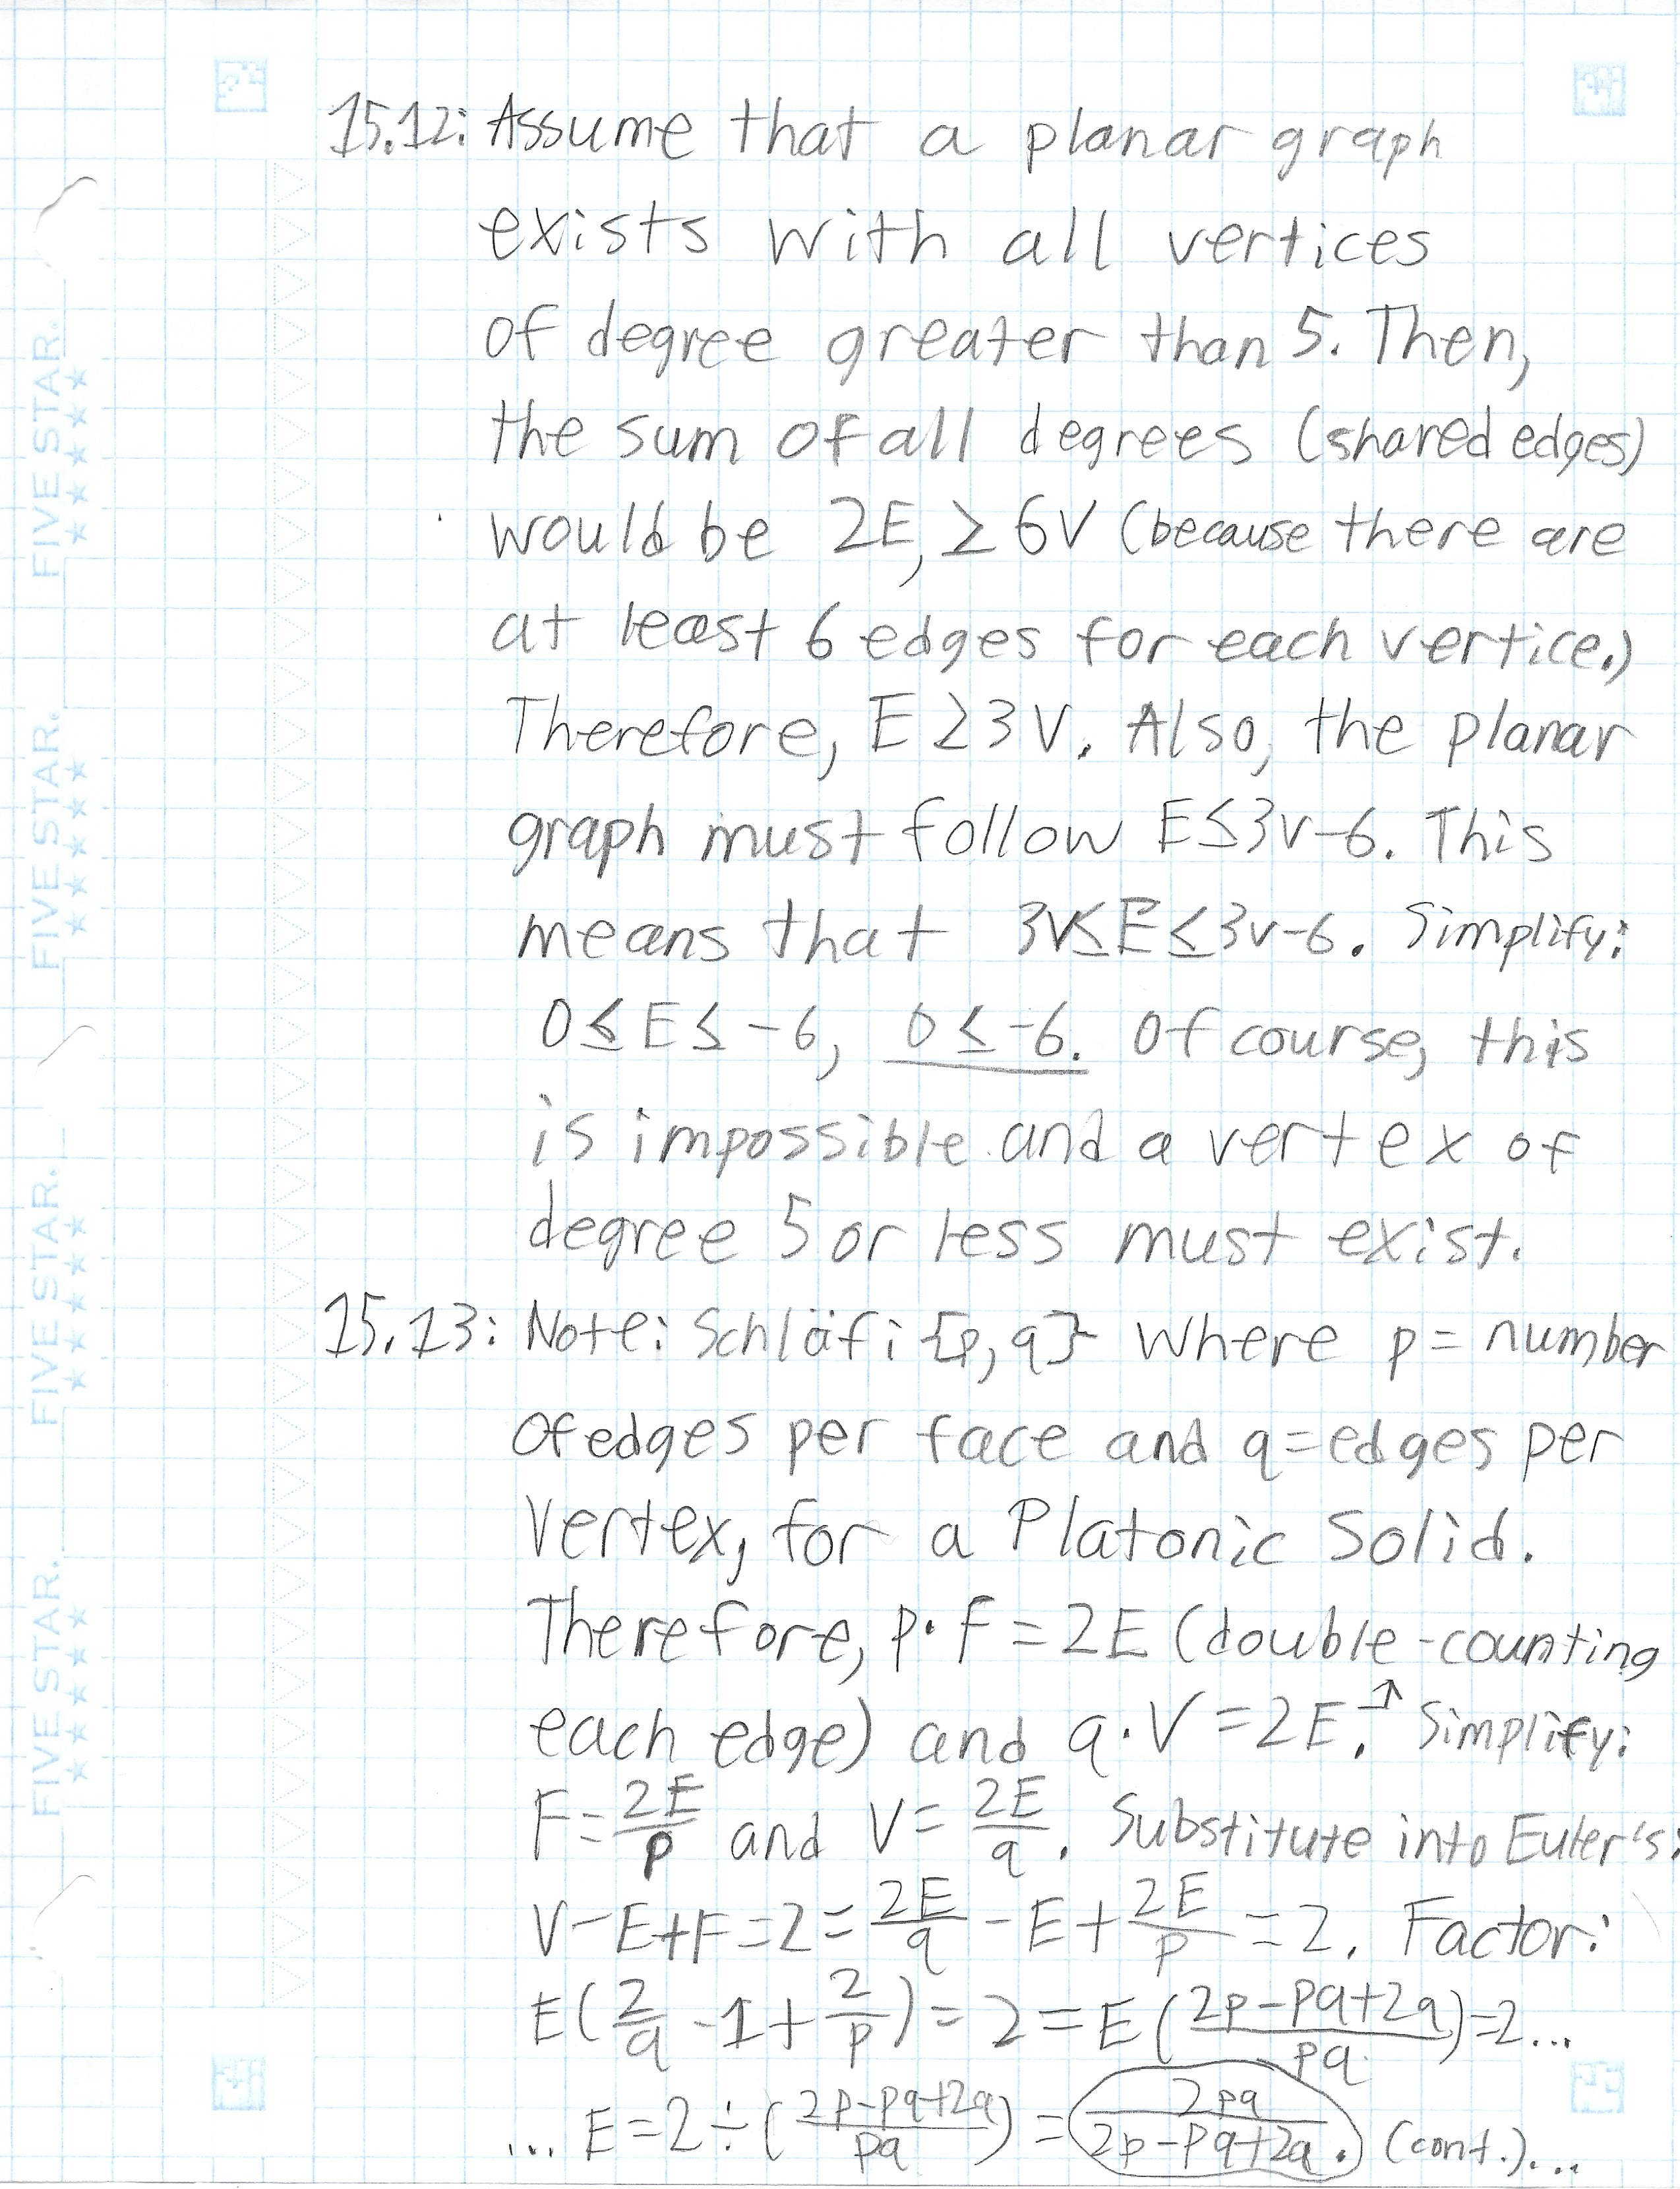 15.12: Assume that a planar graph
exists with all vertices
of degree greater than 5. Then,
the sum of all degrees (shared edges)
would be 2E, ≥ 6V (because there are
at least 6 edges for each vertice.)
Therefore, E ≥ 3V. Also, the planar
graph must follow E ≤ 3v-6. This
means that 3V ≤ E ≤ 3v-6. Simplify:
0 ≤ E ≤ -6, 0 ≤ -6. Of course, this
is impossible and a vertex of
degree 5 or less must exist.
15.13: Note: Schläfi {p,q} where p = number
of edges per face and q = edges per
Vertex, for a Platonic Solid.
Therefore, p·F = 2E (double-counting
each edge) and q·V = 2E.↗ Simplify:
F = 2E/p and V = 2E/q. Substitute into Euler's:
V-E+F=2 = 2E/q - E + 2E/p = 2. Factor:
E(2/q - 1 + 2/p) = 2 = E((2p-pq+2q)/pq)=2...
... E = 2 ÷ ((2p-pq+2q)/pq) = 2pq/(2p-pq+2q). (cont.)...
FIVE STAR. ★★★★★
FIVE STAR. ★★★★★
FIVE STAR. ★★★★★
FIVE STAR. ★★★★★